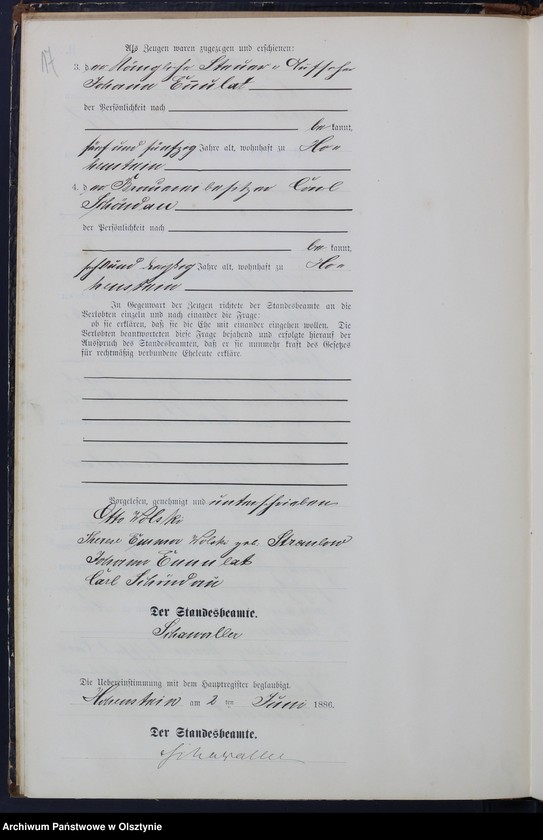 17
Als Zeugen waren zugezogen und erschienen:
3. der Königliche Steuer-Aufseher
Johann Ennulat
der Persönlichkeit nach
be kannt,
fünf und fünfzig Jahre alt, wohnhaft zu Ho-
henstein
4. der Brauereibesitzer Carl
Schöndau
der Persönlichkeit nach
be kannt,
sechsund dreißig Jahre alt, wohnhaft zu Ho-
henstein
In Gegenwart der Zeugen richtete der Standesbeamte an die
Verlobten einzeln und nach einander die Frage:
ob sie erklären, daß sie die Ehe mit einander eingehen wollen. Die
Verlobten beantworteten diese Frage bejahend und erfolgte hierauf der
Ausspruch des Standesbeamten, daß er sie nunmehr kraft des Gesetzes
für rechtmäßig verbundene Eheleute erkläre.
Vorgelesen, genehmigt und unterschrieben
Otto Wolske
Emma Wolske geb. Stranlow
Johann Ennulat
Carl Schöndau
Der Standesbeamte.
Schawaller
Die Uebereinstimmung mit dem Hauptregister beglaubigt.
Hohenstein am 2 ten Juni 1886.
Der Standesbeamte.
Schawaller
Archiwum Państwowe w Olsztynie